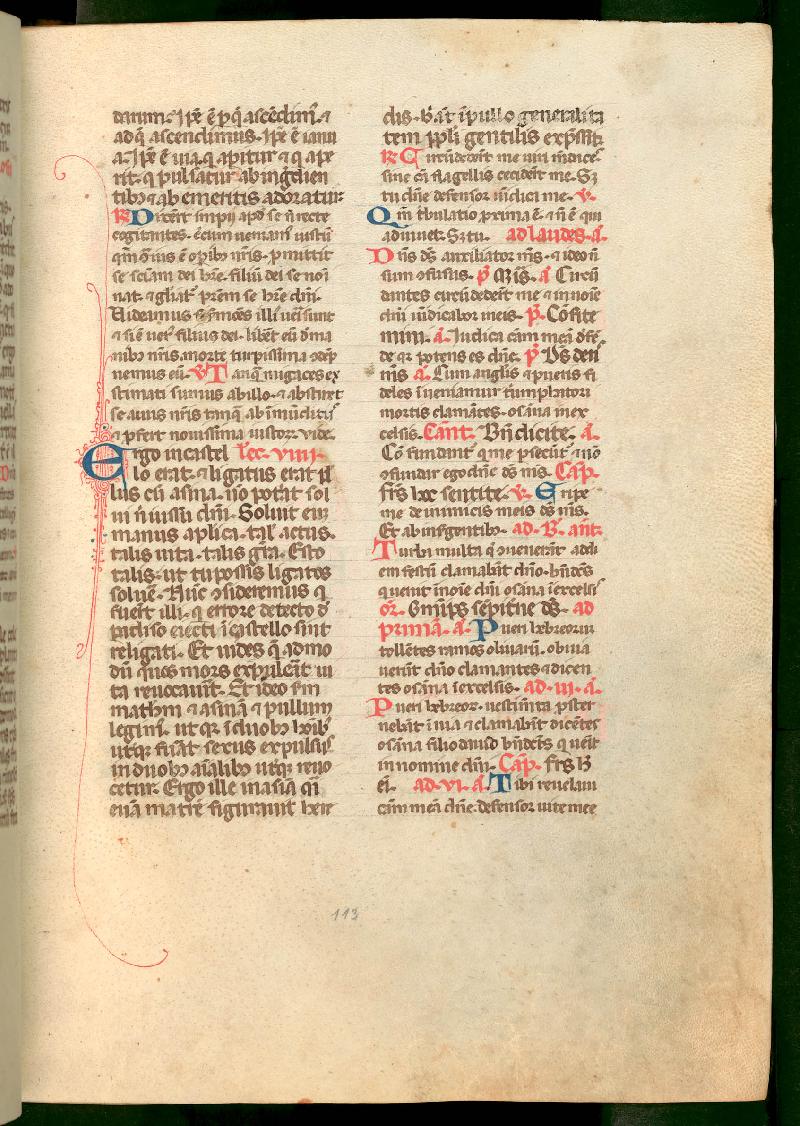 darium. Ip̄e ē p̄ q̄ ascēdim᷒. ⁊
ad q̄ ascendimus. Ip̄e ē ianu
a. Ip̄e ē uia. q̄ apitur ⁊ q̄ ape
rit. q̄ pulsatur ab īgredien
tibꝫ ⁊ ab emeritis adoratur.
R̄ Dixerūt impij apd̄ se n̄ recte
cogitantes. ucniamꝰ iustū
qm̄ ꝯtrariꝰ ē oꝑibꝫ nr̄is. ꝓmittit
se sciam dei hr̄e. filiū dei se noī
nat. ⁊ gl̄iat᷒ pr̄em se hr̄e dm̄.
Videamus si s̄mōes illi ueri sunt
⁊ si ē uer᷒ filius dei. libet eū d̄ ma
nibꝫ nr̄is. morte turpissima ꝯdēp
nemus eū. v̄. Tanq̄ nugaces ex
stimati sumus ab illo. ⁊ abstinet
se a uiis nr̄is tanq̄ ab īmūditijs
⁊ p̄fert nouissima iustoꝝ. vide.
Ergo in castel lēc. viiii.
lo erat. ⁊ ligatus erat pl̄
lus cū asina. nō potat sol
ui n̄ iussu dn̄i. Soluit eū
manus aplica. tal᷒ actus.
talis uita. talis gr̄a. Esto
talis. ut tu possis ligatos
soluē. Nūc ꝯsideremus q̄
fuerīt illi. q̄ errore detecto d̄
padiso eiecti ī castello sint
religati. Et uides q̄ admo
dū quos mors expulerit ui
ta reuocauīt. Et ideo s̄m
mathm̄ ⁊ asinā ⁊ pullum
legim᷒. ut q̄ ī duobꝫ hoībꝫ
utq̄ꝫ fūat sexus expulsꝰ
in duobꝫ aīalibꝫ utq̄ꝫ reuo
cetur. Ergo ille in asia q̄si
euā matrē figurauit her
dis. h᷒ at ī pullo generalita
tem ppl̄i gentilis exp̄ssit.
R̄ Circūdederūt me uiri mēdaces
sine cā flagellis cecidēt me. Sꝫ
tu dn̄e defensor uīdica me. v̄.
Qm̄ tbulatio proxima ē. ⁊ n̄ ē qui
adiuuet. Sꝫ tu. ad laudes. ā.
Dn̄s d̄s auxiliator m̄s. ⁊ ideo n̄
sum ꝯfusus. p̄. Mis̄. ā. Circū
dantes circūdedeīt me ⁊ in noīe
dn̄i uīdicabor in eis. p̄. Cōfite
mini. ā. Iudica cām meā d̄fē
de qꝛ potens es dn̄e. p̄. D̄s d̄s
m̄s. ā. Cum anglis ⁊ pueris fi
deles īueniamur tūmphatori
mortis clamātes. osāna in ex
celsis. Cant. Bn̄dicite. ā.
Cōfundant᷒ qui me p̄secūt᷒ ⁊ nō
ꝯfundar ego dn̄e d̄s m̄s. Cap.
Fr̄s hoc sentite. v̄. Eripe
me de inimicis meis d̄s m̄s.
Et ab insurgentibꝫ. ad .B. ant.
Turba multa q̄ ꝯuenerāt ad di
em festū clamabāt dn̄o. bn̄d̄cs
qui uenit ī noīe dn̄i osāna ī excelsꝭ
or̄. Omīps sēpit̄ne d̄s. ad
primā. ā. Pueri hebreorū
tollētes ramos oliuarū. obuia
uerūt dn̄o clamantes ⁊ dicen
tes osāna ī excelsis. ad .iii. ā.
Pueri hebreoꝝ. uestim̄ta p̄ster
nebāt ī uia ⁊ clamabāt dicētes
osāna filio dauid bn̄d̄cs q̄ ueīt
in nomine dn̄i. Cap. Fr̄s h̄
ei. ad .vi. ā. Tibi reuelaui
cām meā dn̄e. defensor uite mee
113